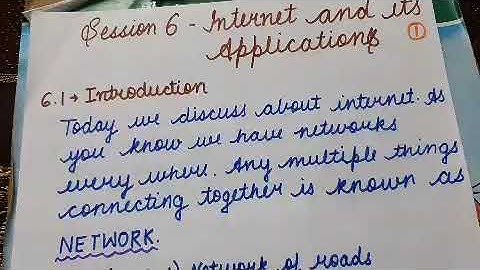 Session 6 - Internet and its
Applications
1
6.1→ Introduction
Today we discuss about internet. As
you know we have networks
every where. Any multiple things
connecting together is known as
NETWORK.
1) Network of roads